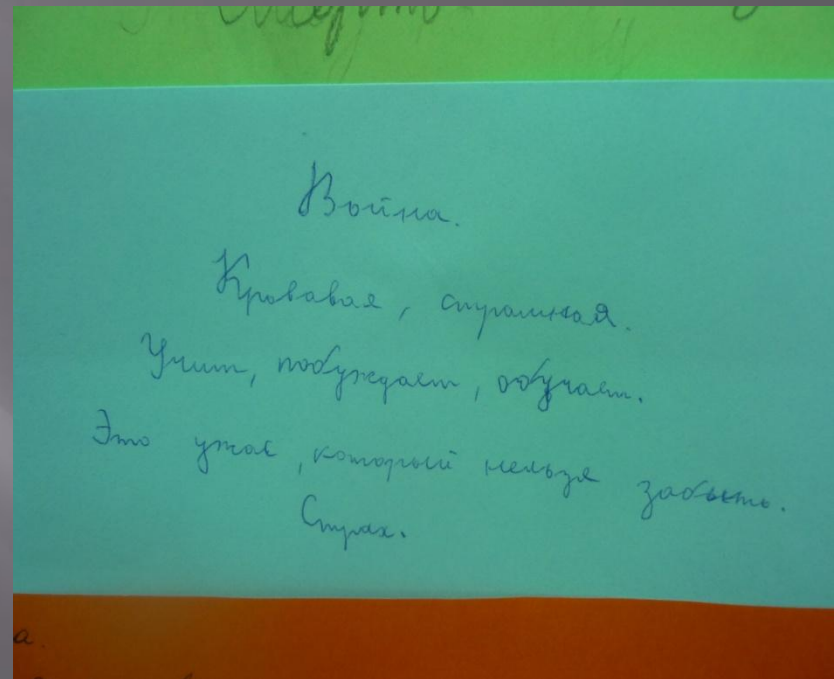 Война.
Кровавая, страшная.
Учит, побуждает, обучает.
Это ужас, который нельзя забыть.
Страх.
а.